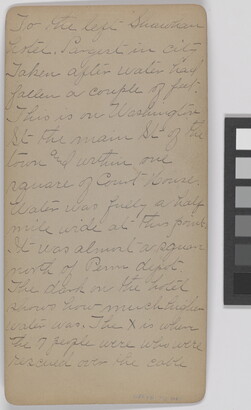 To the left Sheridan
Hotel. Largest in city
Taken after water had
fallen a couple of feet.
This is on Washington
St. the main St. of the
town & within one
square of Court House.
Water was fully a half
mile wide at this point.
It was almost a square
north of Penn depot
The dash on the hotel
shows how much higher
water was. The X is where
the 7 people were who were
rescued over the cable